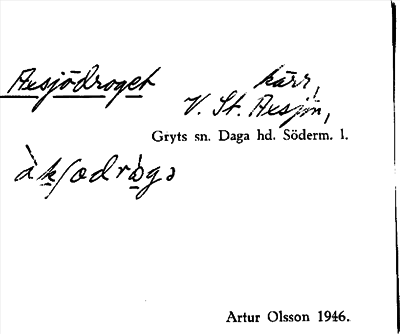 Axsjödroget kärr,
V. St. Axsjön,
Gryts sn. Daga hd. Söderm. l.
Artur Olsson 1946.